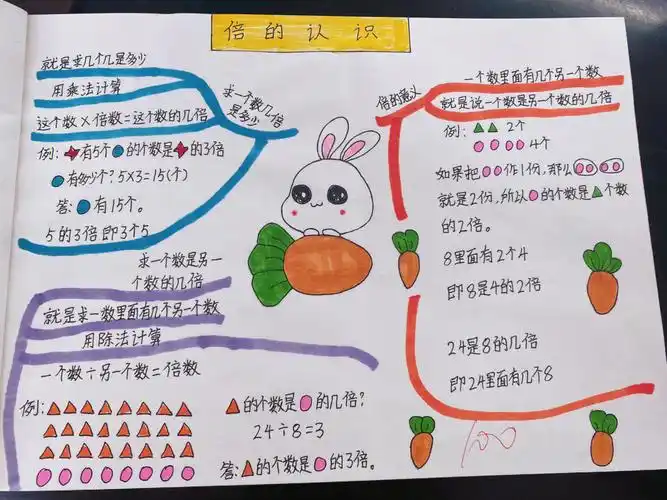 倍的认识
就是求几个几是多少
用乘法计算
这个数×倍数=这个数的几倍
求一个数几倍
是多少
例:有5个的个数是的3倍
有多少个?5×3=15(个)
答:有15个。
5的3倍即3个5
求一个数是另一
个数的几倍
就是求一数里面有几个另一个数
用除法计算
一个数÷另一个数=倍数
例:
的个数是的几倍?
24÷8=3
答:的个数是的3倍。
倍的意义
一个数里面有几个另一个数
就是说一个数是另一个数的几倍
例:2个
4个
如果把作1份,那么
就是2份,所以的个数是个数
的2倍。
8里面有2个4
即8是4的2倍
24是8的几倍
即24里面有几个8
100